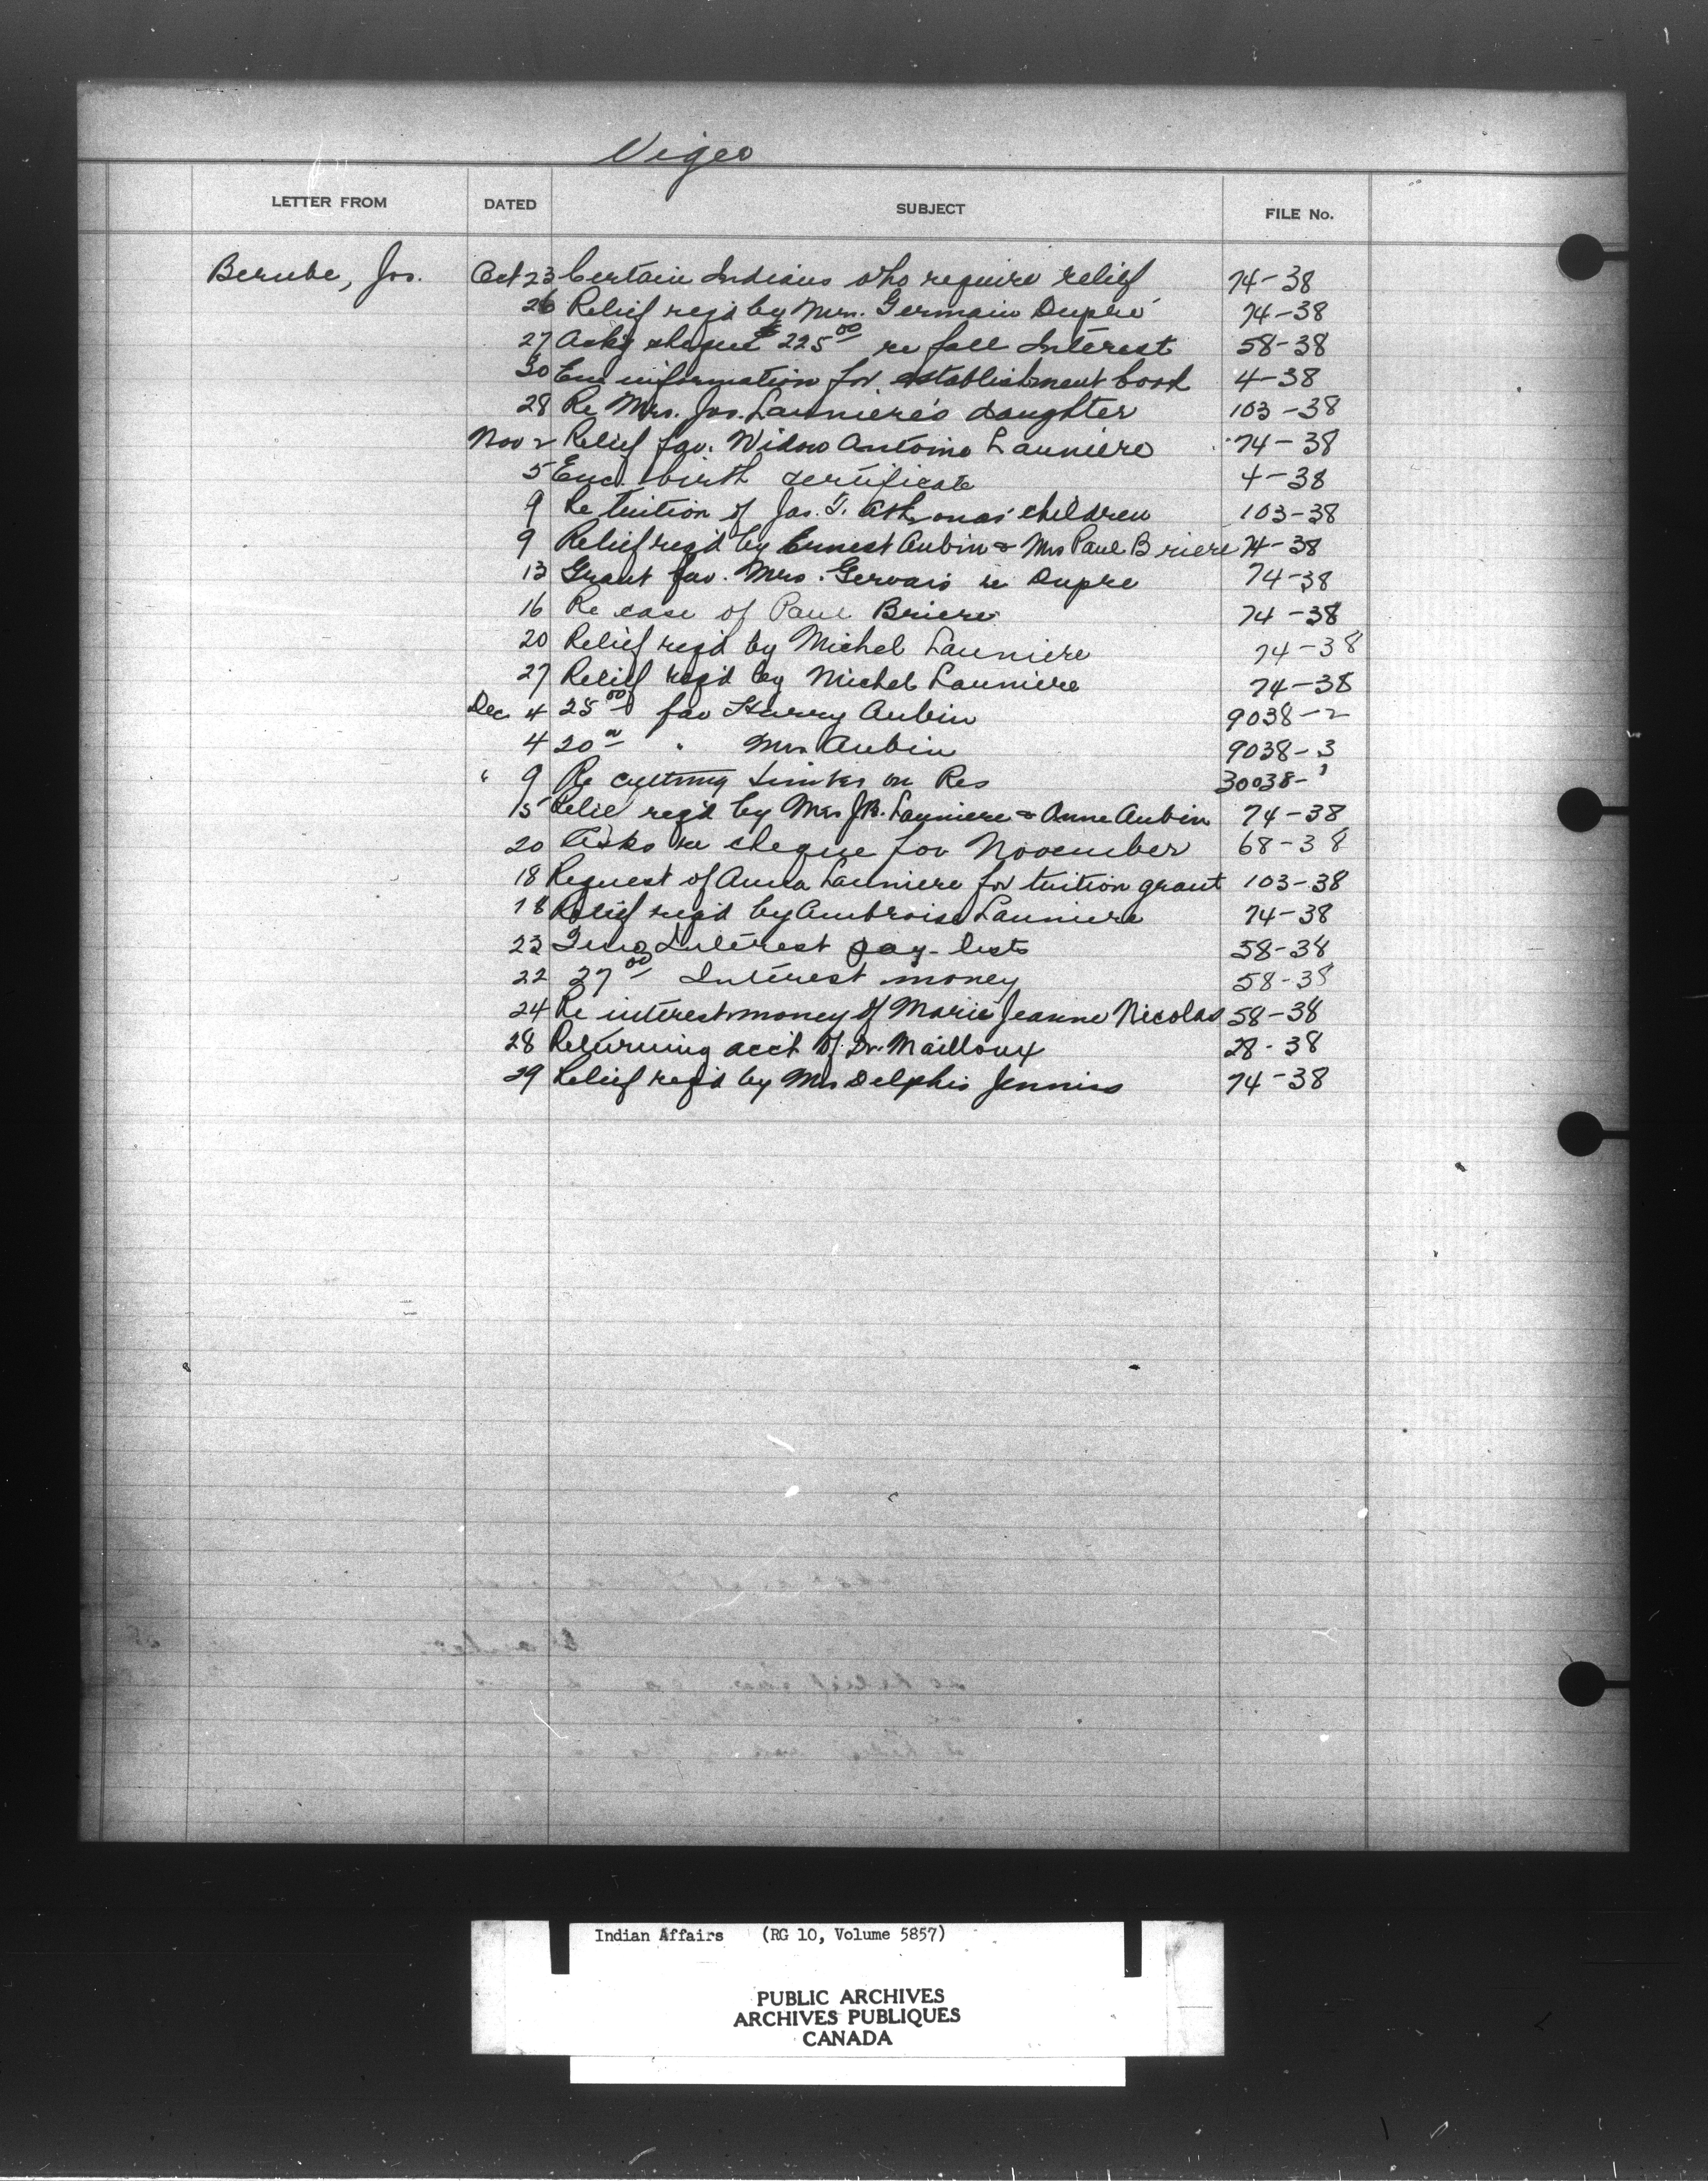 Viger
LETTER FROM DATED SUBJECT FILE No.
Berube, Jos. Oct 23 Certain Indians who require relief 74-38
26 Relief reqd by Mrs. Germain Dupré 74-38
27 Asks cheque $225 00 re fall Interest 58-38
30 Enc information for establishment book 4-38
28 Re Mrs. Jos. Launiere's daughter 103-38
Nov 2 Relief fav. Widow Antoine Launiere 74-38
5 Enc. birth certificate 4-38
9 Re tuition of Jas. children 103-38
9 Relief reqd by Ernest Aubin & Mrs Paul Briere 74-38
13 Grant fav. Mrs. Gervais re Dupre 74-38
16 Re case of Paul Briere 74-38
20 Relief reqd by Michel Launiere 74-38
27 Relief reqd by Michel Launiere 74-38
Dec 4 25 00 fav Harry Aubin 9038-2
4 20 00 " Mrs Aubin 9038-3
" 9 Re cutting timber on Res 30038-1
15 Relief reqd by Mrs J.B. Launiere & Anne Aubin 74-38
20 Asks re cheque for November 68-38
18 Request of Anna Launiere for tuition grant 103-38
18 Relief reqd by Ambroise Launiere 74-38
23 Interest pay-lists 58-38
22 27 00 Interest money 58-38
24 Re interest money of Marie Jeanne Nicolas 58-38
28 Returning acct of Dr. Mailloux 28-38
29 Relief reqd by Mrs Delphis Jennis 74-38
Indian Affairs (RG 10, Volume 5857)
PUBLIC ARCHIVES
ARCHIVES PUBLIQUES
CANADA